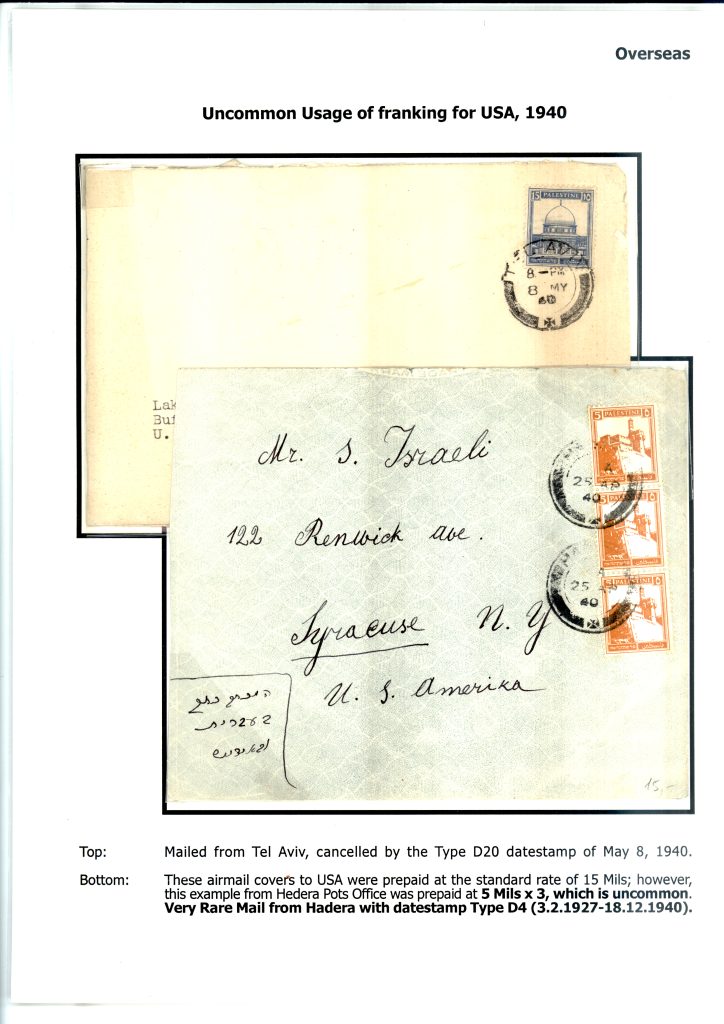 Overseas
Uncommon Usage of franking for USA, 1940
15 PALESTINE ١٥
TEL AVIV
8 - PM
8 MY
40
Lak
Buf
U.
Mr. S. Israeli
122 Renwick ave.
Syracuse N. Y
U. S. Amerika
המכתב כתוב
בעברית
ובאידיש
5 PALESTINE ٥
A
25 AP
40
5 PALESTINE ٥
A
25 AP
40
5 PALESTINE ٥
15,-
Top: Mailed from Tel Aviv, cancelled by the Type D20 datestamp of May 8, 1940.
Bottom: These airmail covers to USA were prepaid at the standard rate of 15 Mils; however,
this example from Hedera Pots Office was prepaid at 5 Mils x 3, which is uncommon.
Very Rare Mail from Hadera with datestamp Type D4 (3.2.1927-18.12.1940).